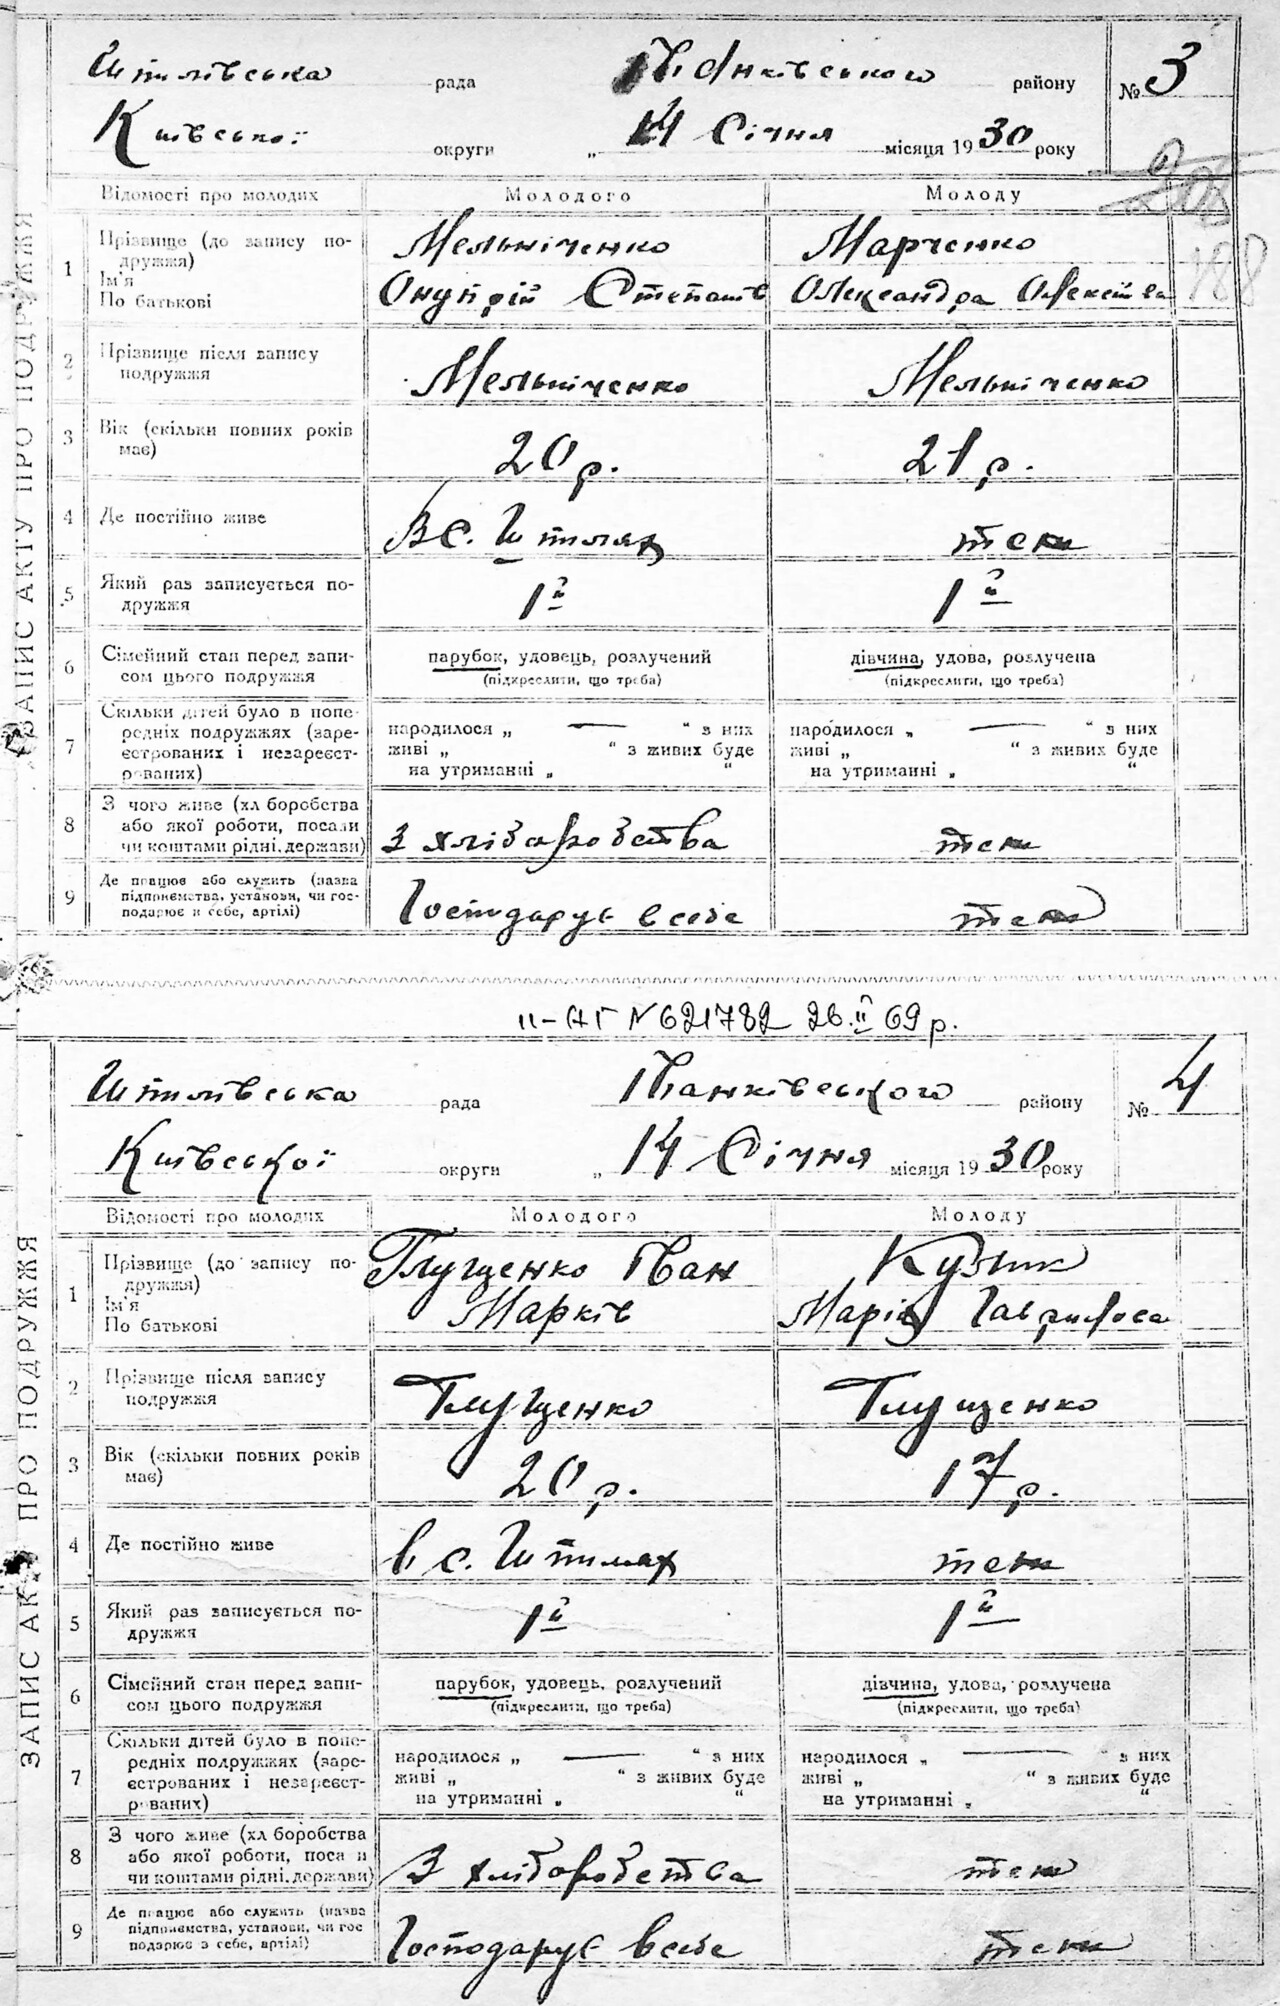 Шпилівська рада Іванківського району № 3
Київської округи „ 14 Січня місяця 1930 року
Відомості про молодих Молодого Молоду
188
ЗАПИС АКТУ ПРО ПОДРУЖЖЯ
1 Прізвище (до запису по- Мельніченко Марченко
дружжя)
Ім'я Онупрій Степанів Олександра Олексіївна
По батькові
2 Прізвище після запису
подружжя Мельніченко Мельніченко
3 Вік (скільки повних років
має) 20 р. 21 р.
4 Де постійно живе В с. Шпилях теж
5 Який раз записується по-
дружжя 1й 1й
6 Сімейний стан перед запи- парубок, удовець, розлучений дівчина, удова, розлучена
сом цього подружжя (підкреслити, що треба) (підкреслити, що треба)
7 Скільки дітей було в попе-
редніх подружжях (заре- народилося „ — “ з них народилося „ — “ з них
єстрованих і незареєст- живі „ “ з живих буде живі „ “ з живих буде
рованих) на утриманні „ “ на утриманні „ “
8 З чого живе (хліборобства
або якої роботи, посади
чи коштами рідні, держави) З хліборобства теж
9 Де працює або служить (назва
підприємства, установи, чи гос-
подарює в себе, артілі) Господарує в себе теж
ІІ-АГ № 621782 26.ІІ 69 р.
Шпилівська рада Іванківського району № 4
Київської округи „ 14 Січня місяця 1930 року
Відомості про молодих Молодого Молоду
ЗАПИС АК ПРО ПОДРУЖЖЯ
1 Прізвище (до запису по- Глущенко Іван Кузьик
дружжя)
Ім'я Марків Марія Гаврилова
По батькові
2 Прізвище після запису
подружжя Глущенко Глущенко
3 Вік (скільки повних років
має) 20 р. 17 р.
4 Де постійно живе в с. Шпилях теж
5 Який раз записується по-
дружжя 1й 1й
6 Сімейний стан перед запи- парубок, удовець, розлучений дівчина, удова, розлучена
сом цього подружжя (підкреслити, що треба) (підкреслити, що треба)
7 Скільки дітей було в попе-
редніх подружжях (заре- народилося „ — “ з них народилося „ — “ з них
єстрованих і незареєст- живі „ “ з живих буде живі „ “ з живих буде
рованих) на утриманні „ “ на утриманні „ “
8 З чого живе (хліборобства
або якої роботи, посади
чи коштами рідні, держави) З хліборобства теж
9 Де працює або служить (назва
підприємства, установи, чи гос
подарює з себе, артілі) Господарує в себе теж